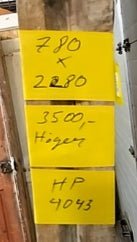 780
x
2280
3500,-
Höger
HP
4043